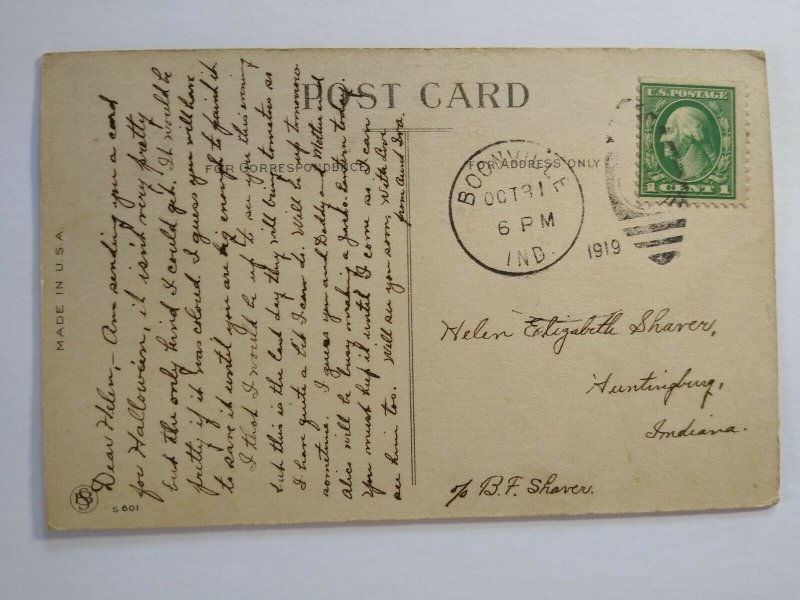 POST CARD
FOR CORRESPONDENCE
FOR ADDRESS ONLY
MADE IN U.S.A.
S 601
U.S. POSTAGE
1 CENT 1
BOONVILLE
OCT 31
6 PM
IND.
1919
Dear Helen,- Am sending you a card
for Halloween, it isn't very pretty
but the only kind I could get. It would be
pretty if it was colord. I guess you will have
to save it until you are big enough to paind it.
I thot I would be up to see you this evening
but this is the last day they will bring tomatoes so
I have quite a bit I can do. Will be up tomorrow
sometime. I guess you and Daddy and Mother and
Alice will be busy making a Jack-lantern today.
You must keep it until I come so I can
see him too. Will see you soon, With love
from Aunt Iva.
Helen Elizabeth Shaver,
Huntingburg,
Indiana.
c/o B.F. Shaver.